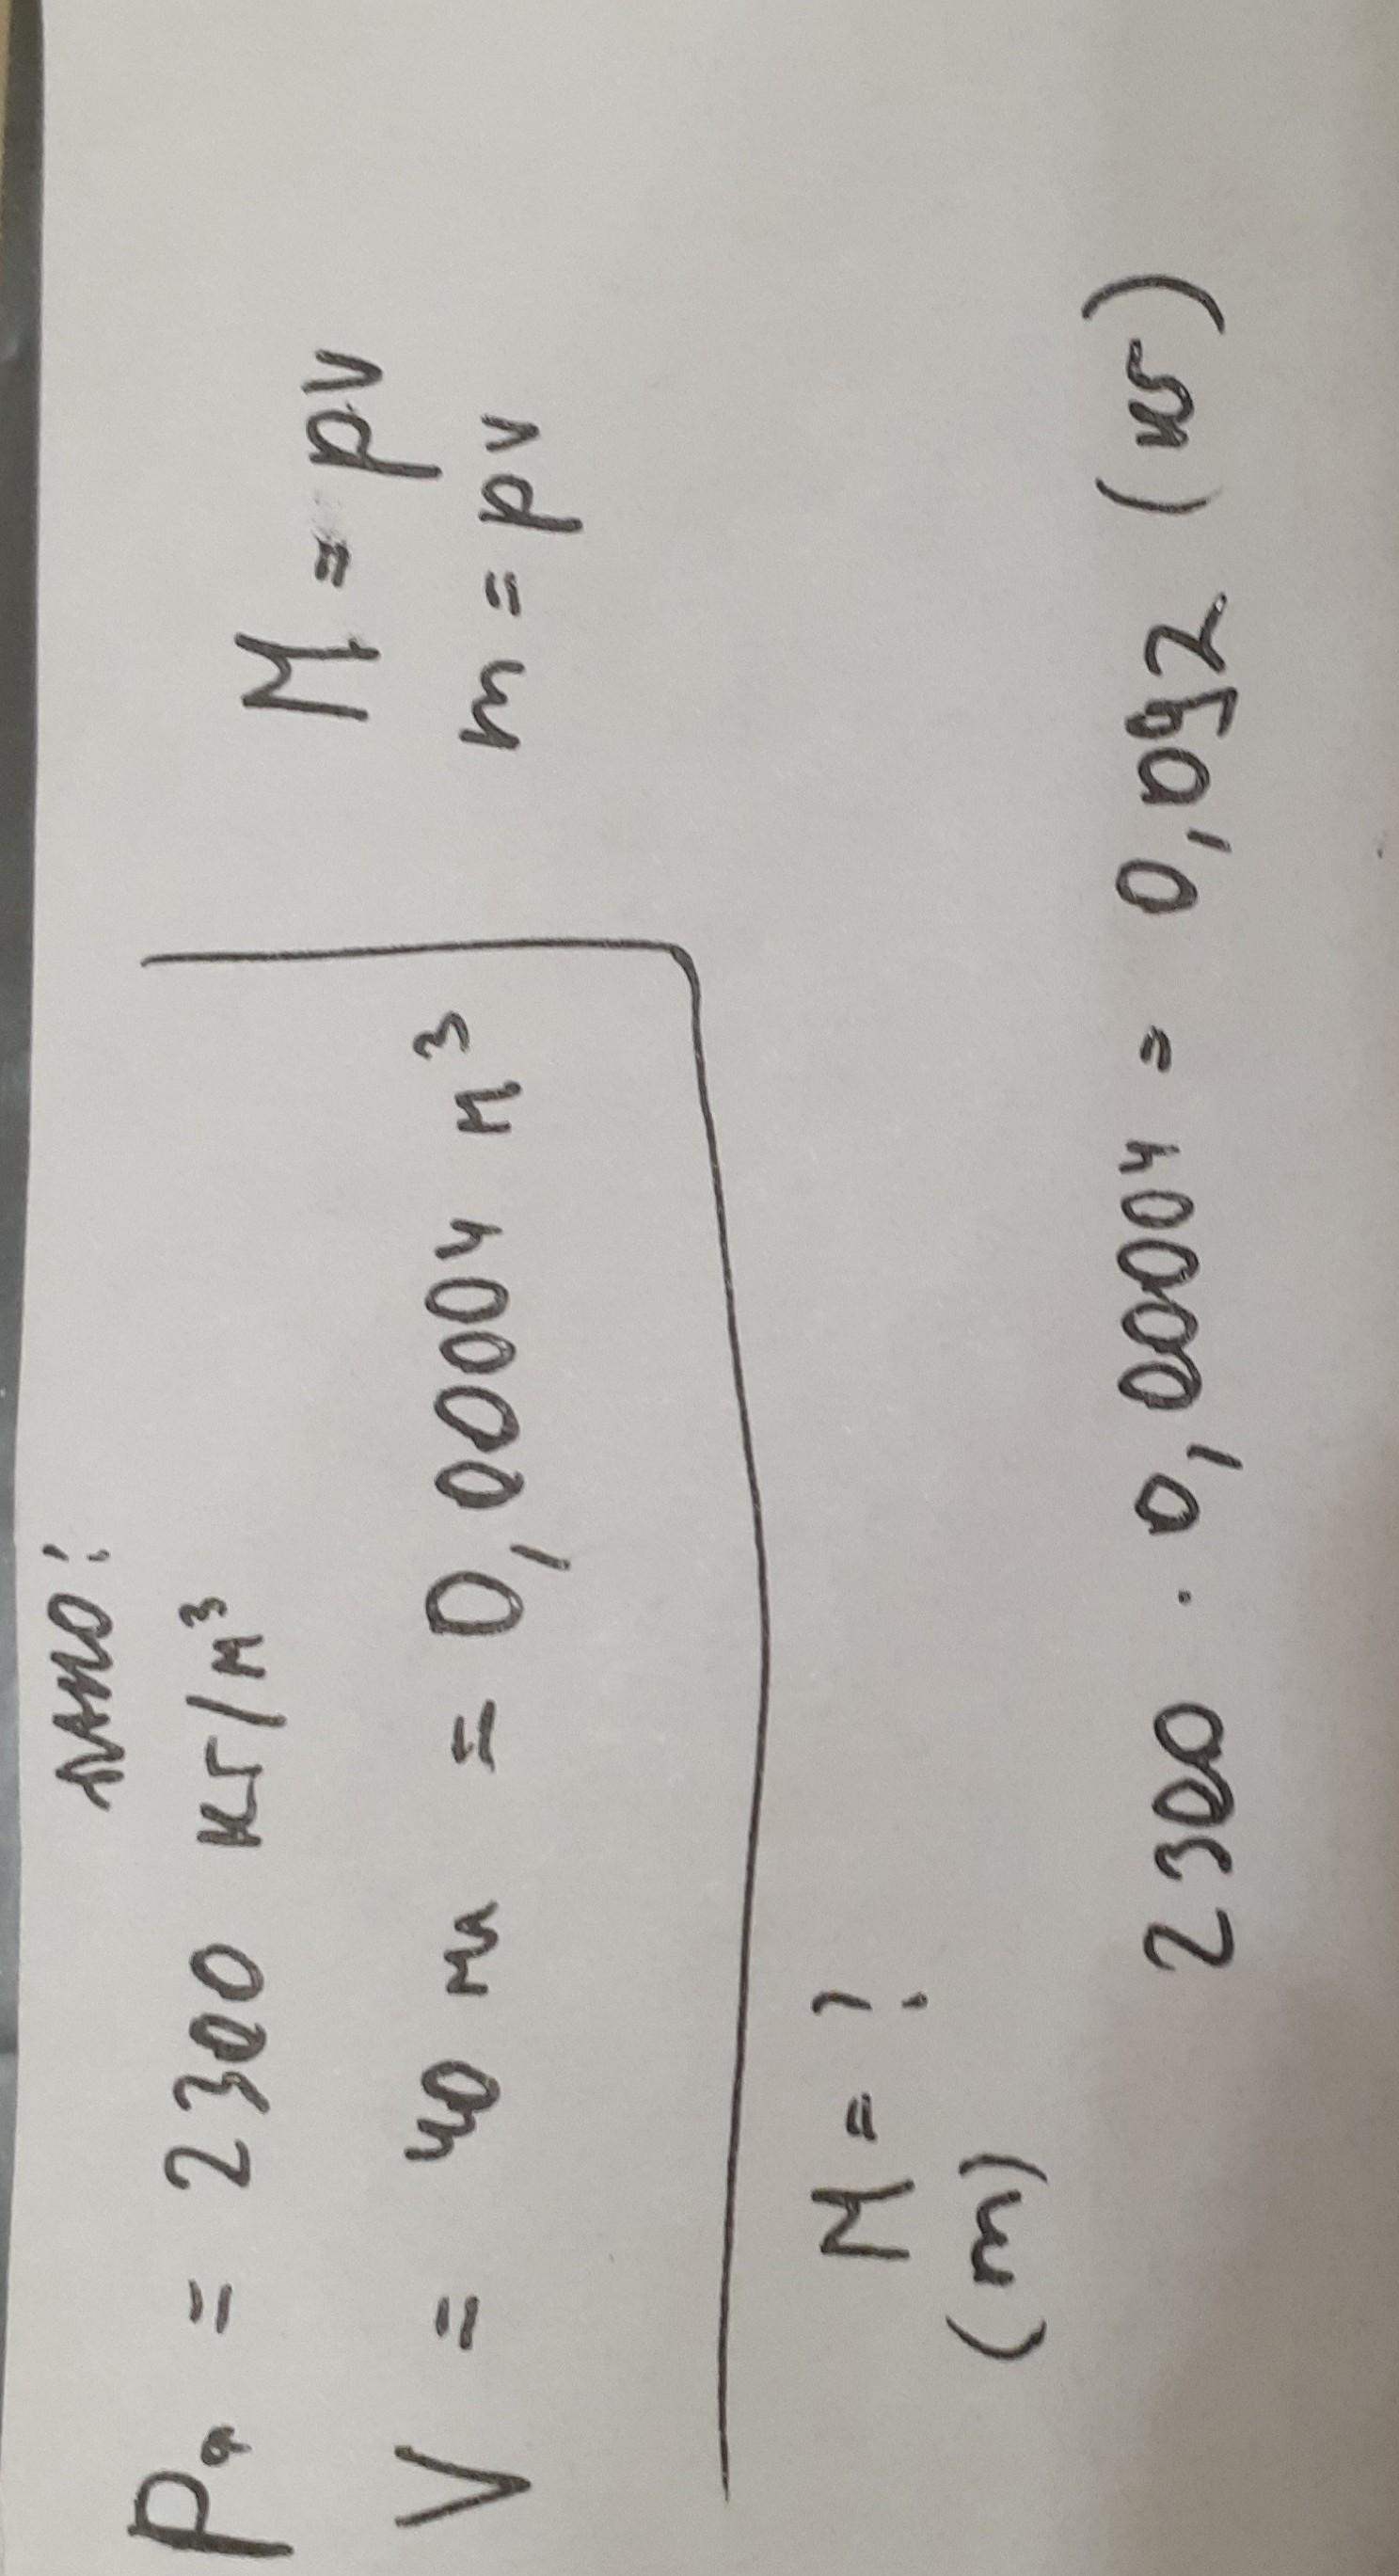 Дано:
Pф = 2300 кг/м³
V = 40 мл = 0,00004 м³
M = ?
(m)
M = ρV
m = ρV
2300 · 0,00004 = 0,092 (кг)